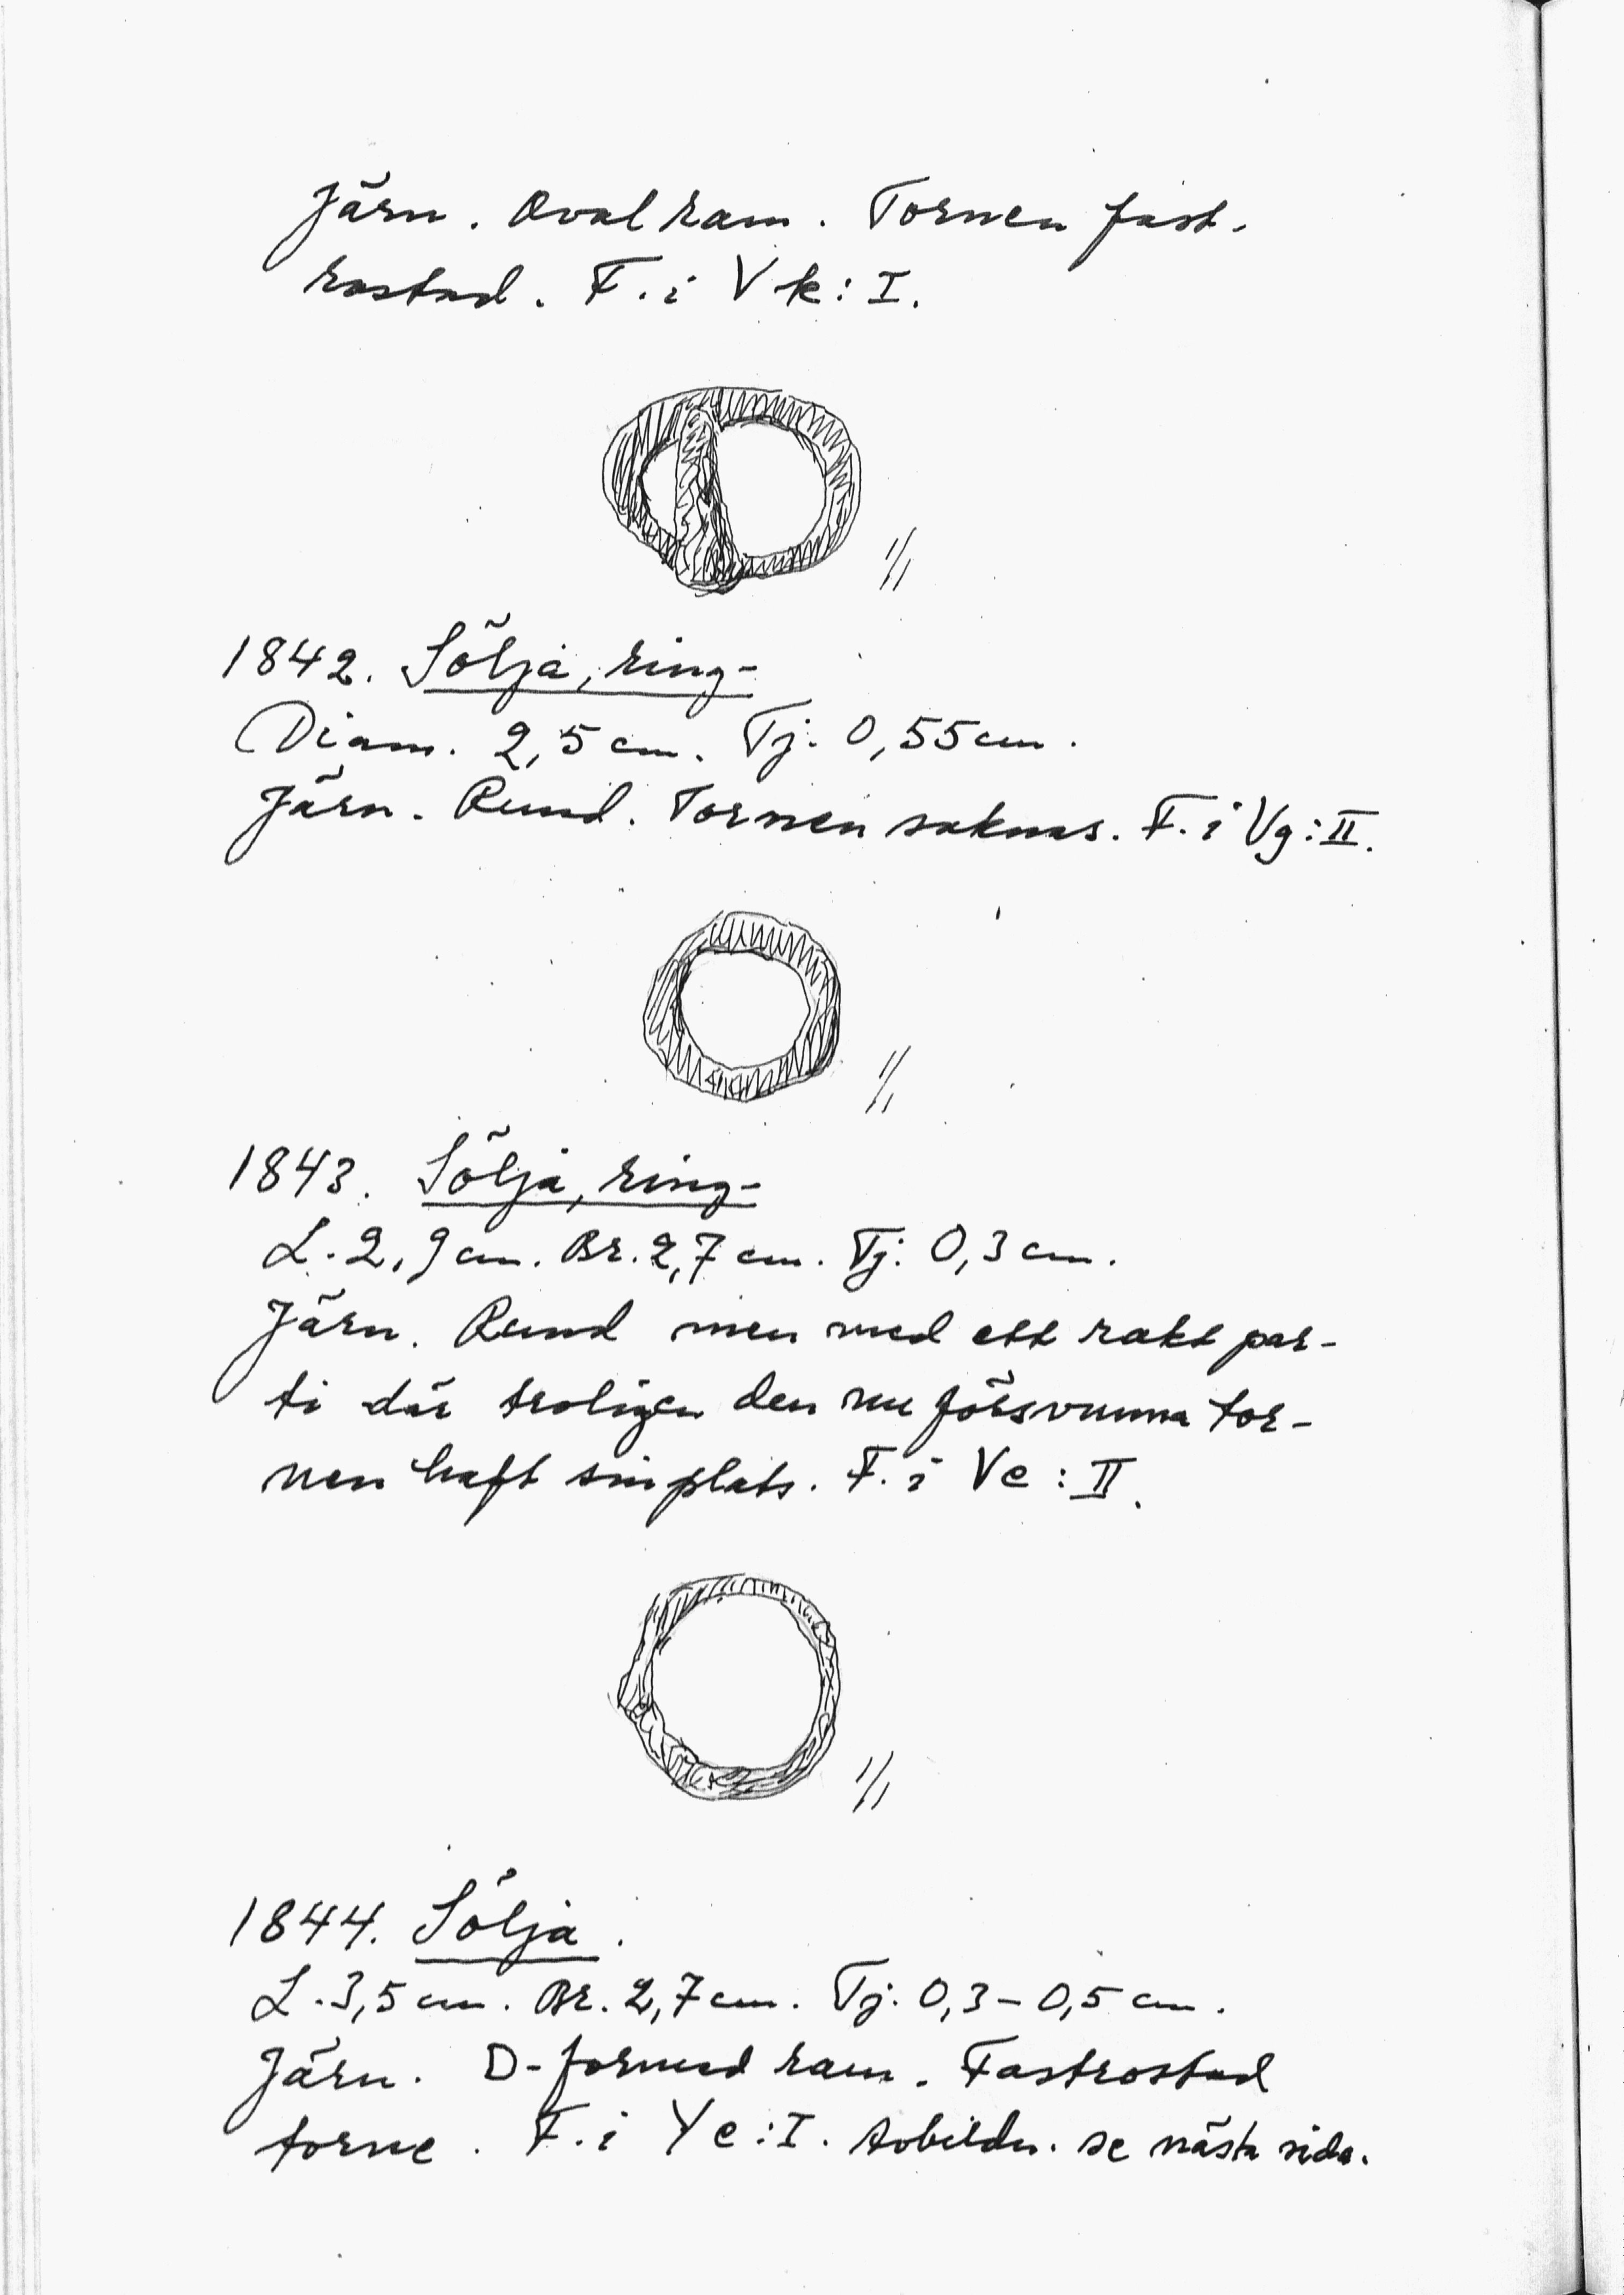 Järn. Oval ram. Tornen fast-
rostad. F. i Vk: I.
1/1
1842. Sölja, ring-
Diam. 2,5 cm. Tj. 0,55 cm.
Järn. Rund. Tornen saknas. F. i Vg: II.
1/1
1843. Sölja, ring-
L. 2,9 cm. Br. 2,7 cm. Tj. 0,3 cm.
Järn. Rund men med ett rakt par-
ti där troligen den nu försvunna tor-
nen haft sin plats. F. i Ve: II.
1/1
1844. Sölja.
L. 3,5 cm. Br. 2,7 cm. Tj. 0,3-0,5 cm.
Järn. D-formad ram. Fastrostad
torne. F. i Ye: I. Avbildn. se nästa sida.